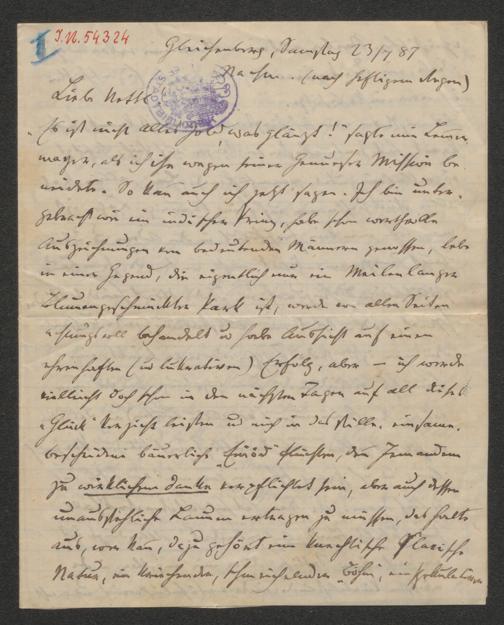 I
J.N. 54324
Gleichenberg, Samstag 23/7 87
Nachm. (nach heftigem Regen)
Liebe Netti
„Es ist nicht alles Gold, was glänzt!" sagte mir
mayer, als ich ihn wegen seiner Mission be-
neidete. So kan auch ich jetzt sagen. Ich bin unter-
gebracht wie ein indischer Prinz, habe schon werthvolle
Auszeichnungen von bedeutenden Männern genossen, lebe
in einer Gegend, die eigentlich nur ein Meilen langer
Blumengeschmückter Park ist, werde von allen Seiten
achtungsvoll behandelt u habe Aussicht auf einen
ehrenhaften (u lukrativen) Erfolg, aber – ich werde
vielleicht doch schon in den nächsten Tagen auf all dieses
„Glück" Verzicht leisten und mich in das stille, einsame,
bescheidene bäuerliche Einöd flüchten, den Jemandem
zu wirklichem Danke verpflichtet sein, aber auch dessen
unausstehliche Launen ertragen zu müssen, das halte
aus, wer kan, dazu gehört eine knechtische slavische
Natur, ein kriechender, schmeichelnder ein